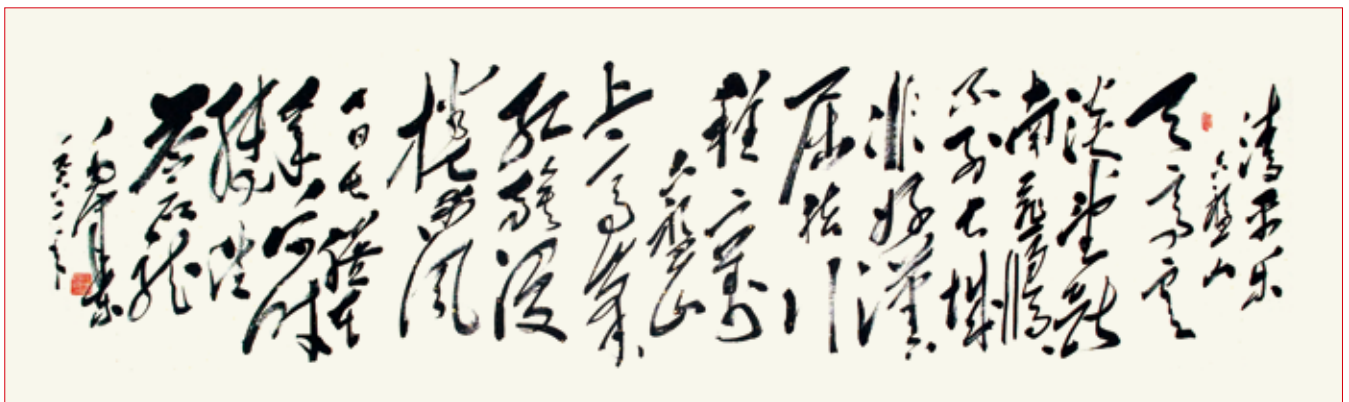 清平乐
六盘山
天高云
淡望断
南飞雁
不到长城
非好汉
屈指行
程二万
六盘山
上高峰
红旗漫
捲西风
今日长缨在
手何时
缚住
苍龙
毛泽东
一九六一年